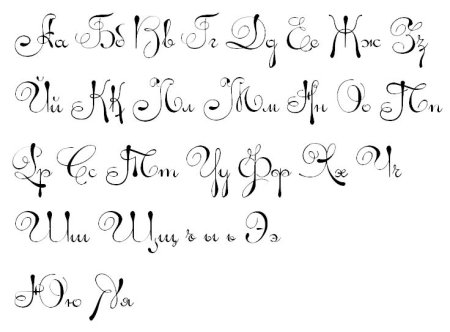 Аа Бб Вв Гг Дд Ее Жж Зз
Йй Кк Лл Мм Нн Оо Пп
Рр Сс Тт Уу Фф Хх Чч
Шш Щщ ъ ы ь Ээ
Юю Яя